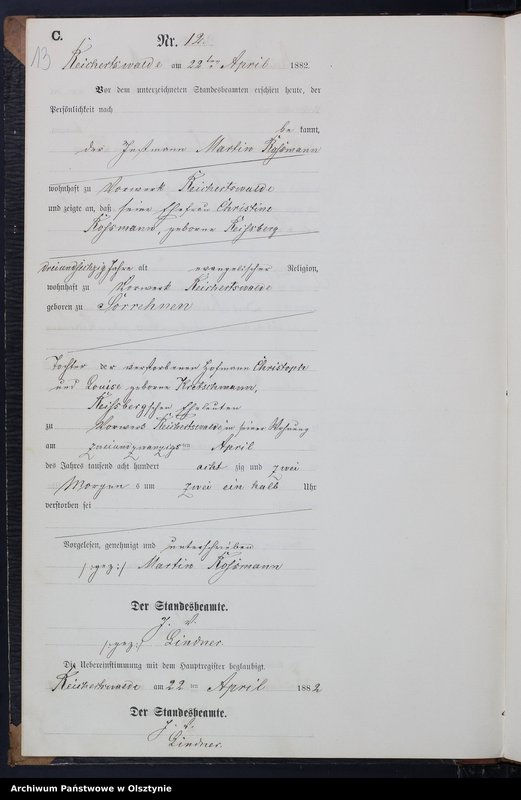 C.
Nr. 12.
13
Reichertswalde am 22ten April 1882.
Vor dem unterzeichneten Standesbeamten erschien heute, der
Persönlichkeit nach
be kannt,
der Instmann Martin Roßmann
wohnhaft zu Vorwerk Reichertswalde
und zeigte an, daß seine Ehefrau Christine
Roßmann, geborne
Jahre alt evangelischer Religion,
wohnhaft zu Vorwerk Reichertswalde
geboren zu Sorrehnen
Tochter der verstorbenen Hofmann Christoph
und Louise geborne Kretschmann,
Eheleuten
zu Vorwerk Reichertswalde in seiner Wohnung
am zweiundzwanzigsten April
des Jahres tausend acht hundert acht zig und zwei
Morgens um zwei ein halb Uhr
verstorben sei
Vorgelesen, genehmigt und unterschrieben
/:gez:/ Martin Roßmann
Der Standesbeamte.
J. V.
/:gez:/ Lindner.
Die Uebereinstimmung mit dem Hauptregister beglaubigt.
Reichertswalde am 22 ten April 1882
Der Standesbeamte.
J. V.
Lindner.
Archiwum Państwowe w Olsztynie